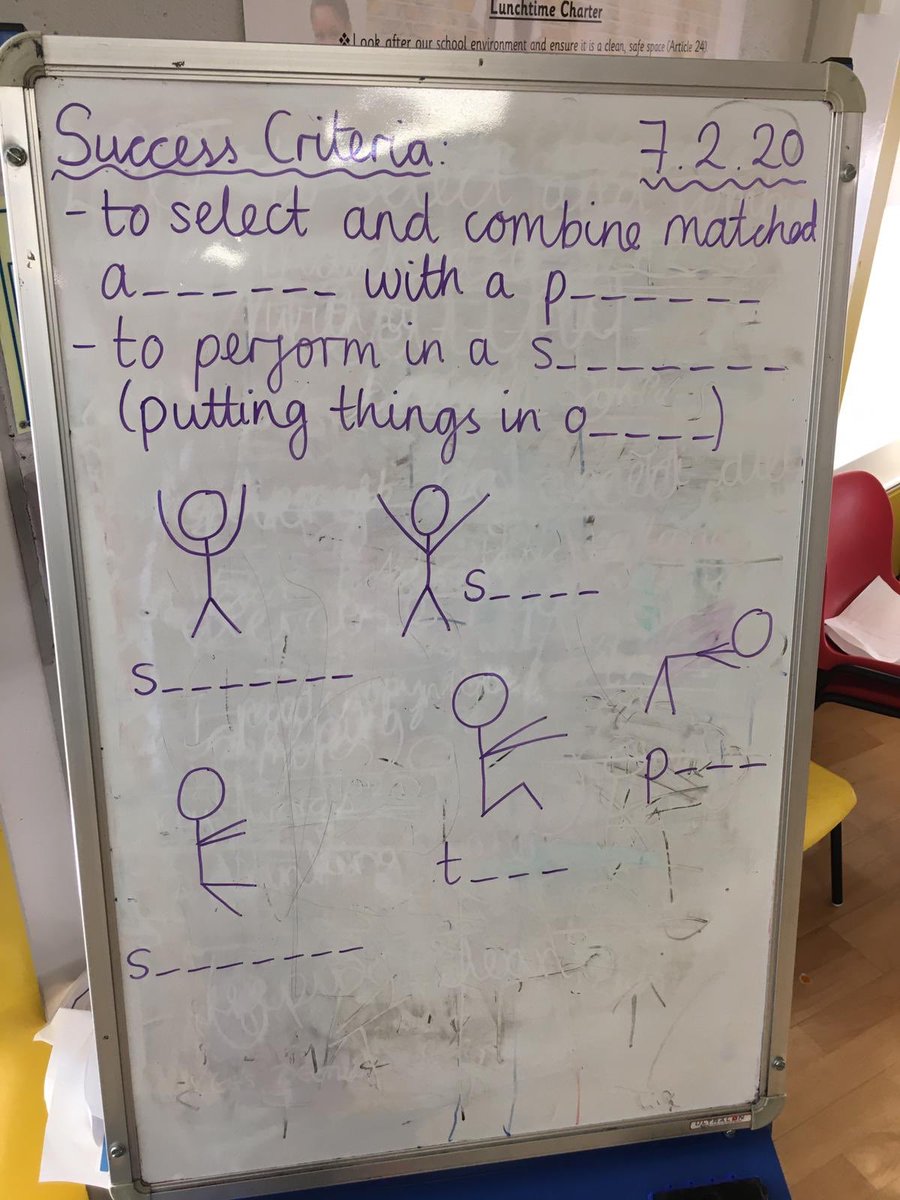 Lunchtime Charter
❖ Look after our school environment and ensure it is a clean, safe space (Article 24)
Success Criteria: 7.2.20
- to select and combine matched
a_ _ _ _ _ _ _ with a p_ _ _ _ _ _ _
- to perform in a s_ _ _ _ _ _ _ _
(putting things in o_ _ _ _)
s_ _ _ _
s_ _ _ _ _ _ _ _
p_ _ _ _
t_ _ _ _
s_ _ _ _ _ _ _ _
ULTRALON